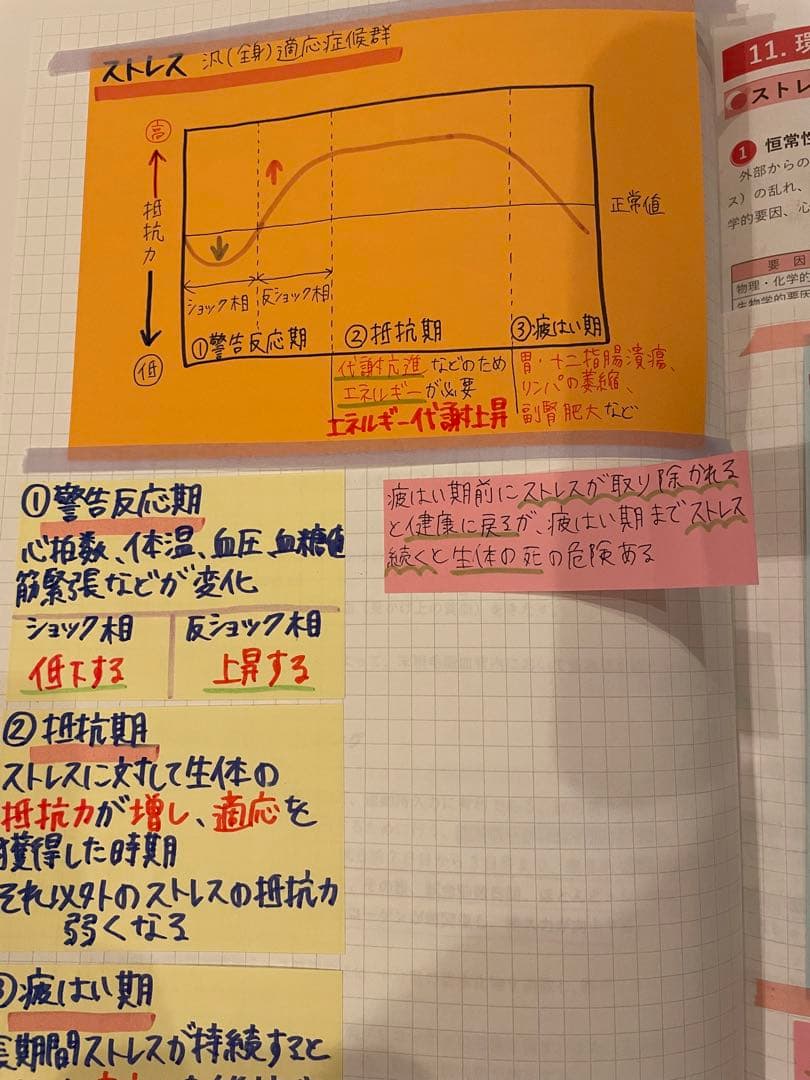 ストレス 汎(全身)適応症候群
高
抵抗力
低
正常値
ショック相 反ショック相
①警告反応期
②抵抗期
③疲はい期
代謝亢進などのため
エネルギーが必要
エネルギー代謝上昇
胃・十二指腸潰瘍、
リンパの萎縮、
副腎肥大など
①警告反応期
心拍数、体温、血圧、血糖値
筋緊張などが変化
ショック相 反ショック相
低下する 上昇する
疲はい期前にストレスが取り除かれる
と健康に戻るが、疲はい期までストレス
続くと生体の死の危険ある
②抵抗期
ストレスに対して生体の
抵抗力が増し、適応を
獲得した時期
それ以外のストレスの抵抗力
弱くなる
③疲はい期
長期間ストレスが持続すると
11. 環
ストレ
1 恒常性
外部からの
ス)の乱れ、
学的要因、心
要 因
物理・化学的
生物学的要因